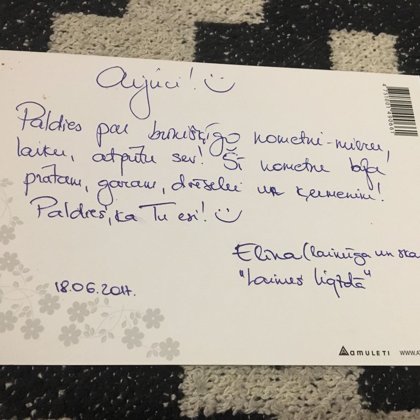 Aijuci! :)
Paldies par burvīgo nometni-mieru!
laiku, atpūtu sev! Šī nometne bija
prātam, garam, dvēselei un ķermenim!
Paldies, ka Tu esi! :)
Elīna (laimīga un
"Laimes ligzdā"
18.06.2017.
amuleti